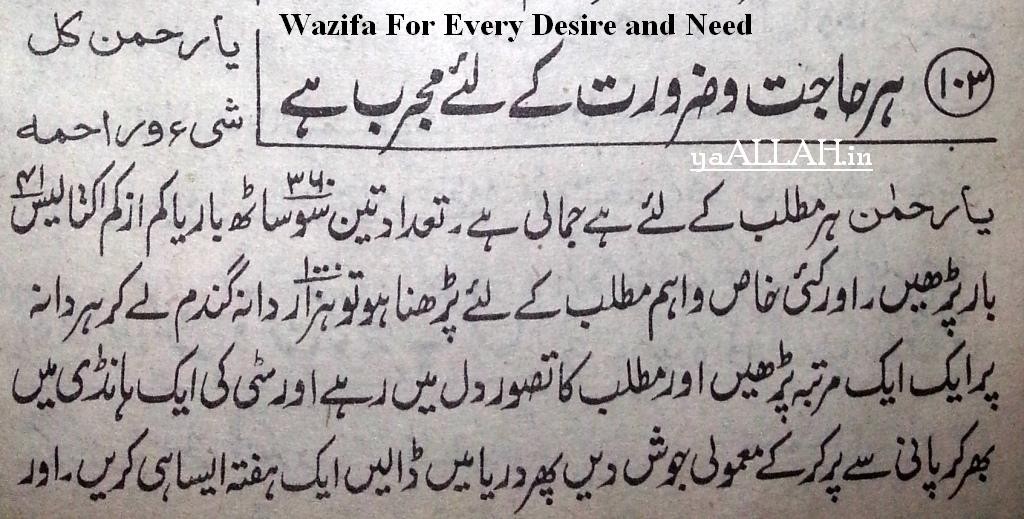 Wazifa For Every Desire and Need
یا رحمن کل
شیء وراحمه
۱۰۳ ہر حاجت و ضرورت کے لئے مجرب ہے
yaALLAH.in
یا رحمٰن ہر مطلب کے لئے ہے جمالی ہے ۔ تعداد تین سو ساٹھ ۳۶۰ بار یا کم از کم اکتالیس ۴۱
بار پڑھیں ۔ اور کئی خاص و اہم مطلب کے لئے پڑھنا ہو تو ہزار ۱۰۰۰ دانہ گندم لے کر ہر دانہ
پر ایک ایک مرتبہ پڑھیں اور مطلب کا تصور دل میں رہے اور سٹی کی ایک ہانڈی میں
بھر کر پانی سے پر کر کے معمولی جوش دیں پھر دریا میں ڈالیں ایک ہفتہ ایسا ہی کریں ۔ اور